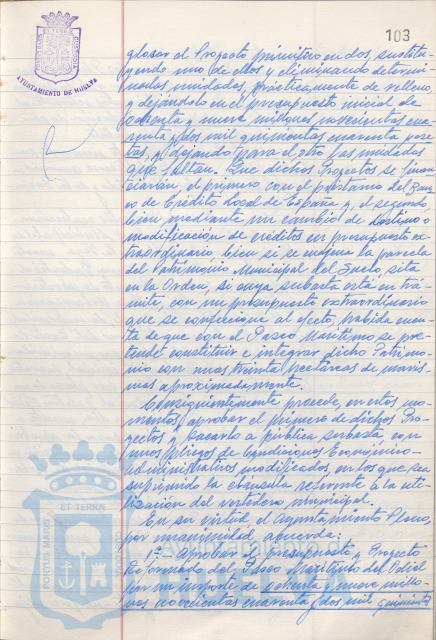 103
AYUNTAMIENTO DE HUELVA
glosar el Proyecto primitivo en dos, sustitu-
yendo uno de ellos y eliminando determi-
nadas unidades, prácticamente de relleno,
y dejándolo en el presupuesto inicial de
ochenta y nueve millones novecientas cua-
renta y dos mil quinientas cuarenta pese-
tas, y dejando para el otro las unidades
que faltan. Que dichos Proyectos se finan-
ciarán, el primero con el préstamo del Ban-
co de Crédito Local de España y el segundo
bien mediante un cambio de destino o
modificación de créditos en presupuesto ex-
traordinario bien si se enajena la parcela
del Patrimonio Municipal del Suelo, sita
en la Orden, si cuya subasta está en trá-
mite, con un presupuesto extraordinario
que se confeccione al efecto, habida cuen-
ta de que con el Paseo Marítimo se pre-
tende constituir e integrar dicho Patrimo-
nio con unas treinta hectáreas de maris-
mas aproximadamente.
Consiguientemente procede, en estos mo-
mentos, aprobar el primero de dichos Pro-
yectos y sacarlo a pública subasta, con
unos pliegos de Condiciones Económico-
administrativas modificados, en los que sea
suprimido la cláusula referente a la uti-
lización del vertedero municipal.
En su virtud, el Ayuntamiento Pleno,
por unanimidad, acuerda:
1º - Aprobar el Presupuesto y Proyecto
Reformado del Paseo Marítimo del Odiel
por un importe de ochenta y nueve millo-
nes novecientas cuarenta y dos mil quinientas
PORTUS MARIS ET TERRAE CUSTODIA